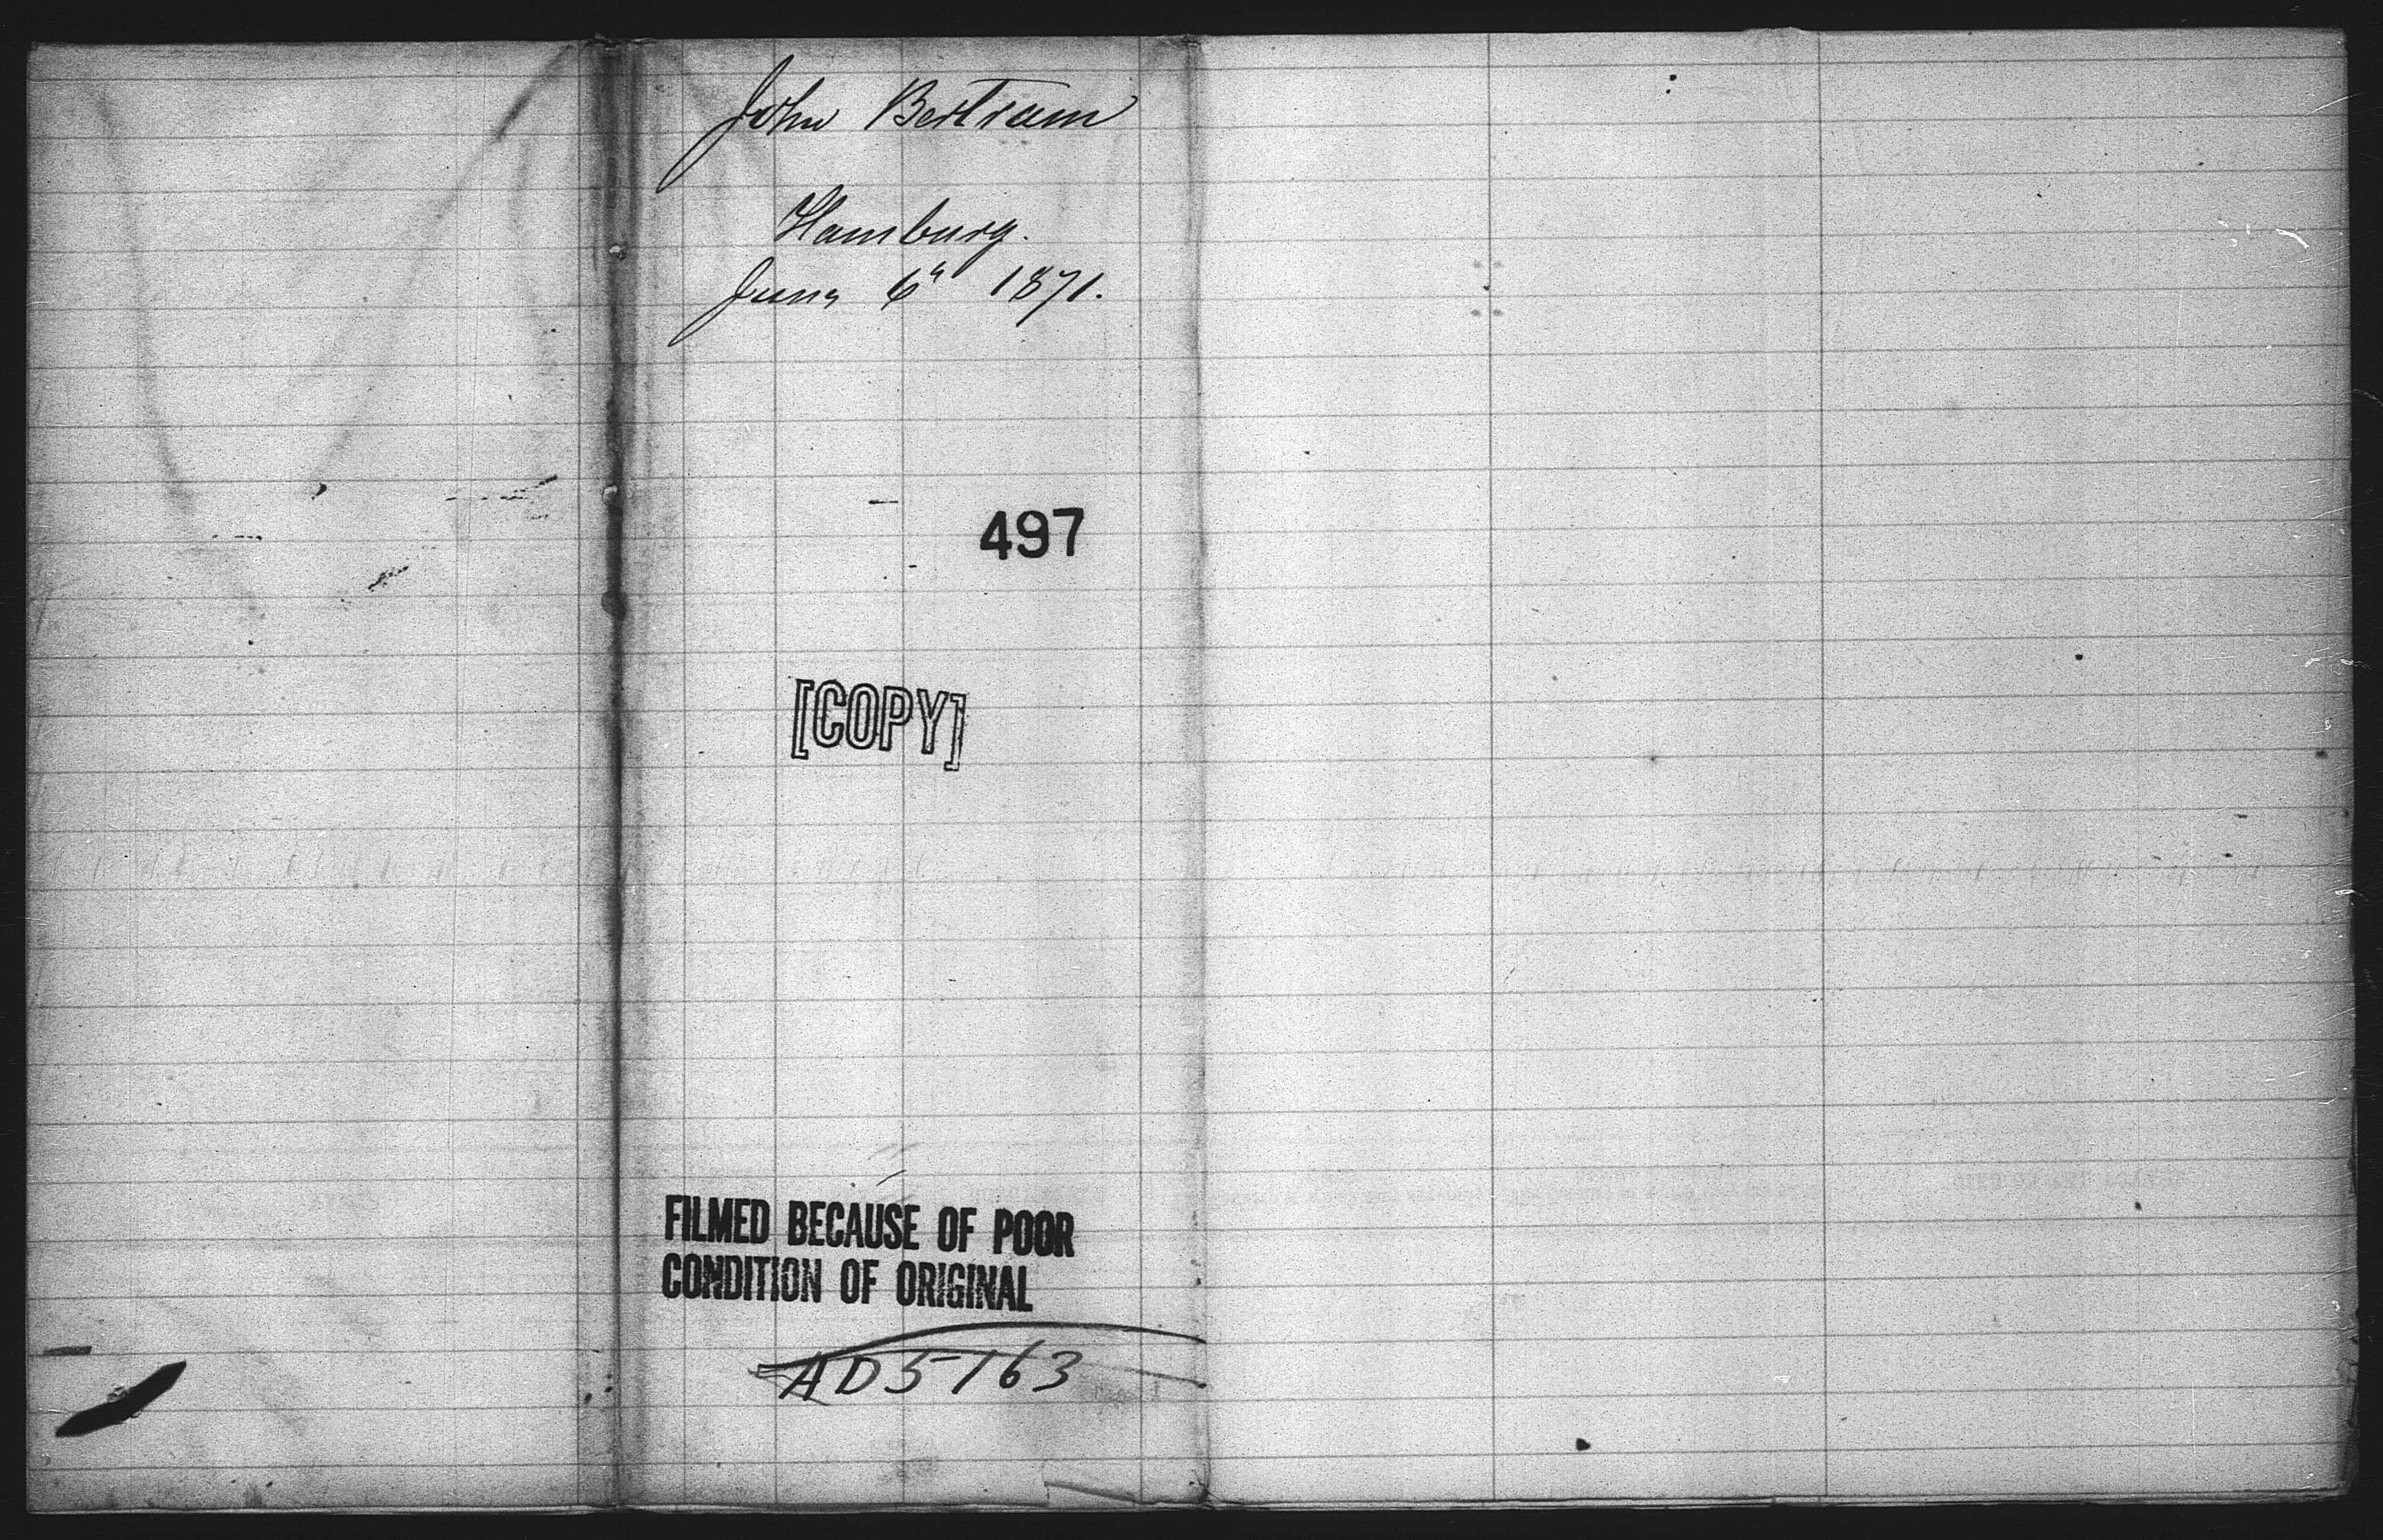 John Bertram
Hamburg.
June 6" 1871.
497
[COPY]
FILMED BECAUSE OF POOR
CONDITION OF ORIGINAL
AD5163